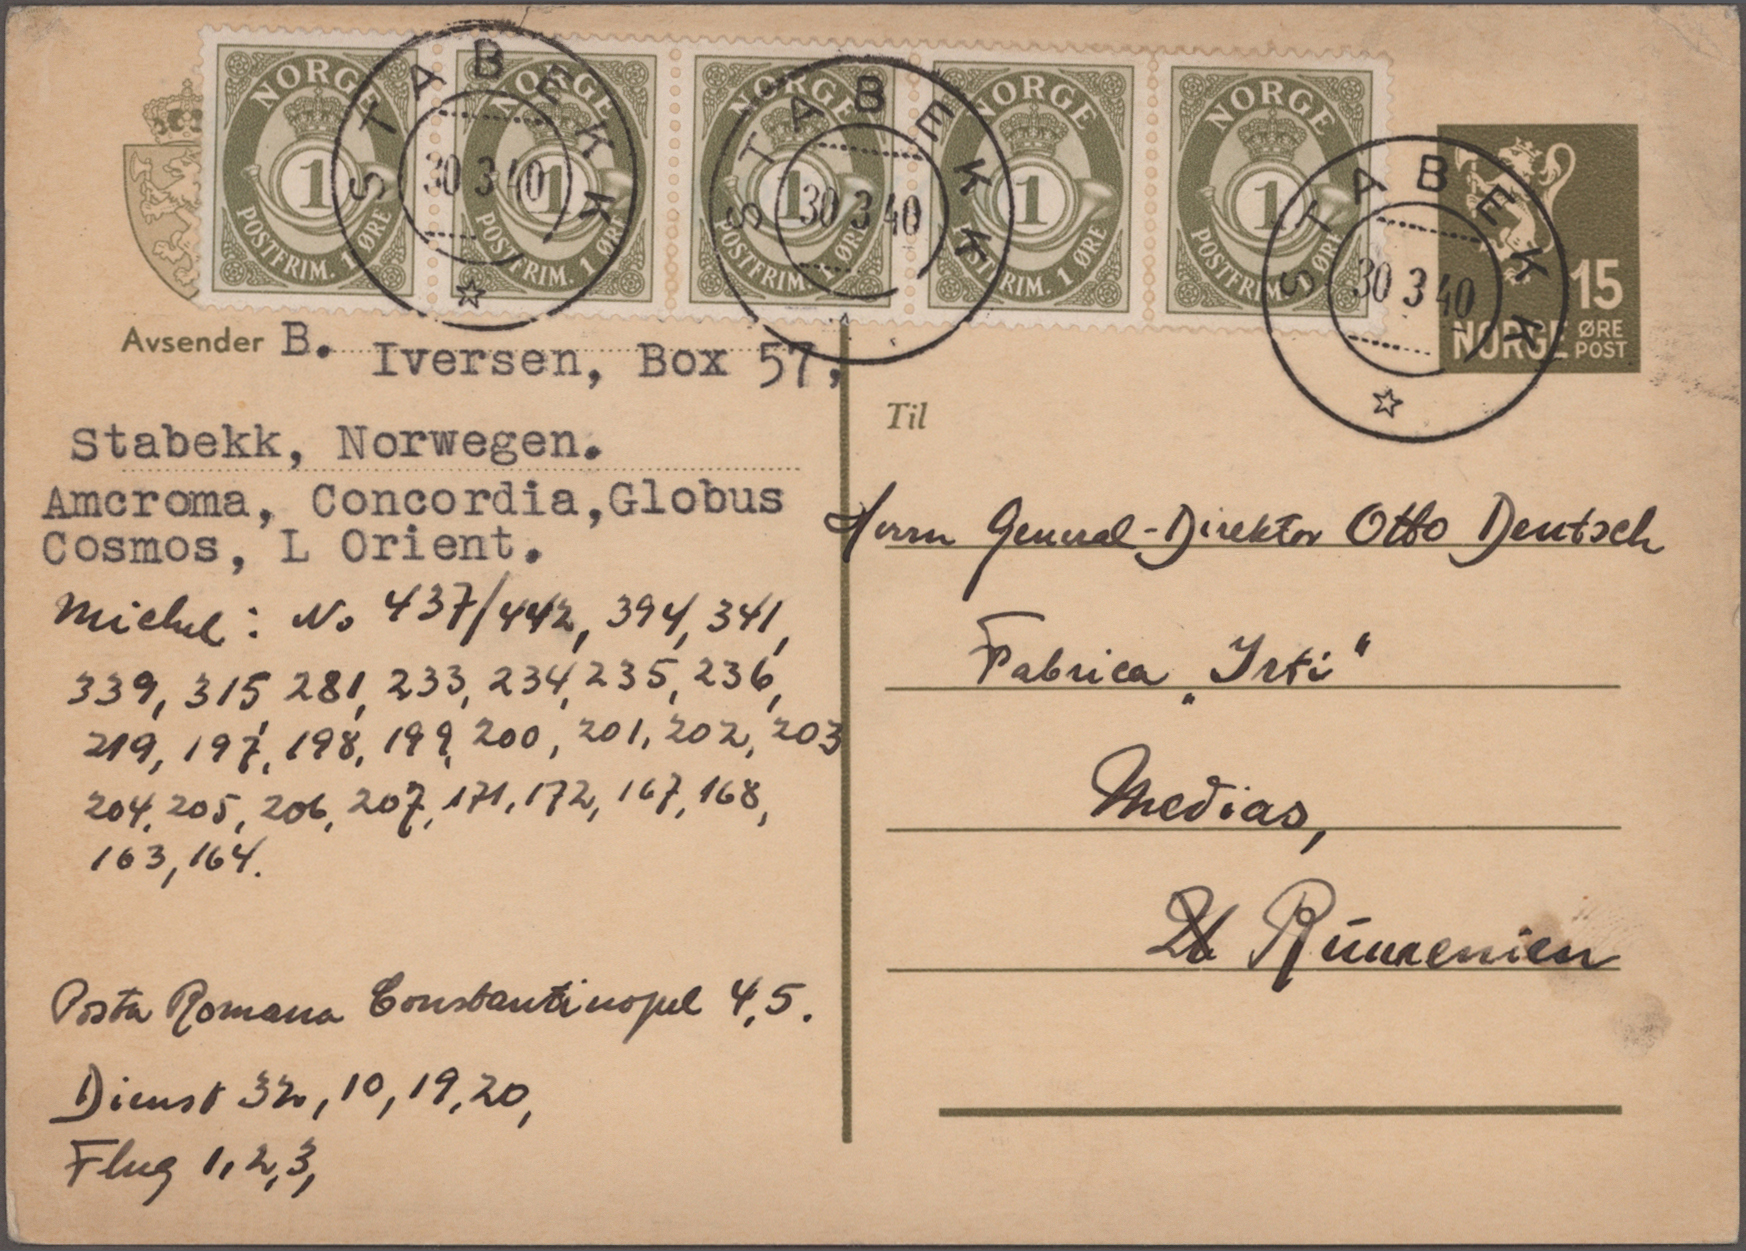 NORGE NORGE NORGE NORGE NORGE
1 1 1 1 1
POSTFRIM. 1 ØRE POSTFRIM. 1 ØRE POSTFRIM. 1 ØRE POSTFRIM. 1 ØRE POSTFRIM. 1 ØRE
STABEKK STABEKK STABEKK
30 3 40 30 3 40 30 3 40
15
NORGE ØRE POST
Avsender B. Iversen, Box 57,
Stabekk, Norwegen.
Amcroma, Concordia,Globus
Cosmos, L Orient.
Michel: No 437/442, 394, 341,
339, 315, 281, 233, 234, 235, 236,
219, 197, 198, 199, 200, 201, 202, 203
204, 205, 206, 207, 171, 172, 167, 168,
163, 164.
Posta Romana Constantinopel 4,5.
Dienst 10, 19, 20,
Flug 1, 2, 3,
Til
Herrn General-Direktor Otto Deutsch
Fabrica „Irti“
Medias,
Rumenien